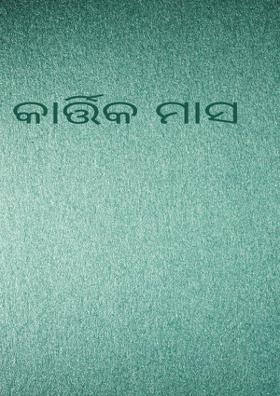 କାର୍ତ୍ତିକ ମାସ